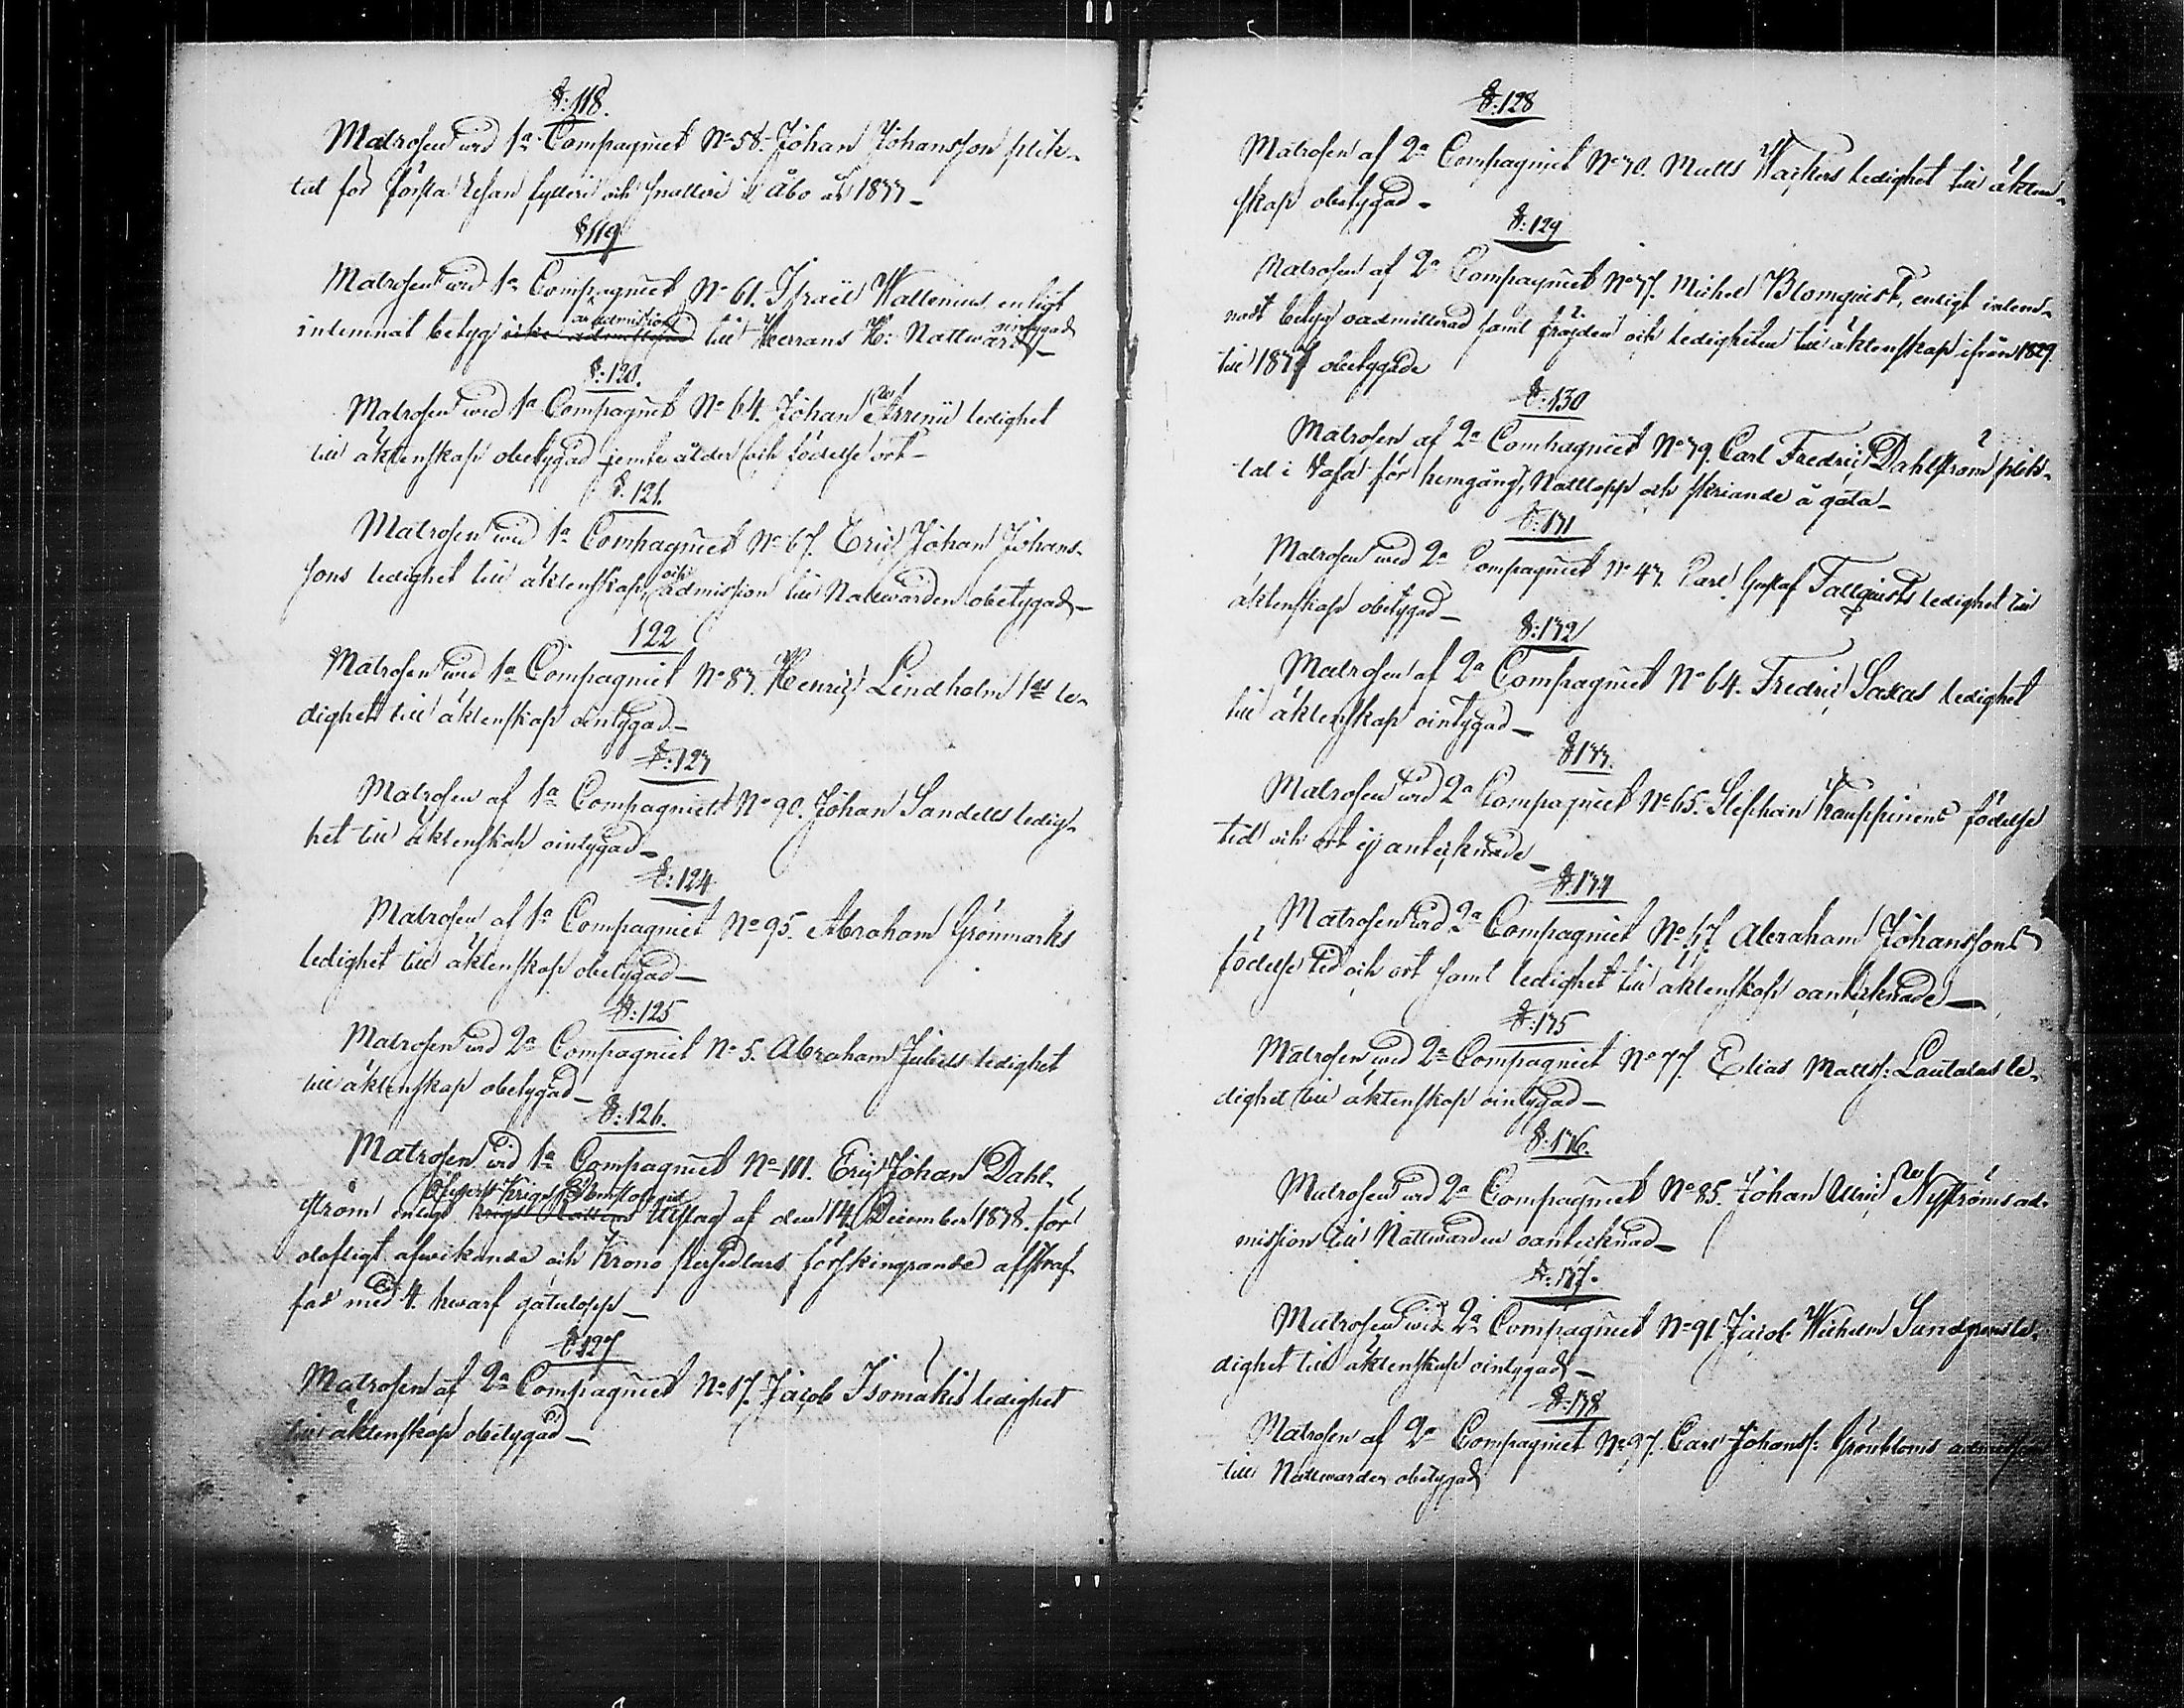 §:118.
Matrosen wid 1a Compagniet No 58. Johan Johansson plik-
tat för första resan fylleri och snatteri i Åbo år 1833 -
§119
Matrosen wid 1a Compagniet No 61. Israël Wallenius enligt
inlemnat betyg oadmitterad till Herrans H: Nattward -
§:120.
Matrosen wid 1a Compagniet No 64. Johan Arrenii ledighet
till äktenskap obetygad jemte ålder och födelse ort -
§.121.
Matrosen wid 1a Compagniet No 67. Eric Johan Johans-
sons ledighet till äktenskap, och admission till Nattwarden obetygad -
122
Matrosen wid 1a Compagniet No 83. Henric Lindholms le-
dighet till äktenskap ointygad -
§:123
Matrosen af 1a Compagniet No 90. Johan Sandells ledig-
het till äktenskap ointygad -
§:124
Matrosen af 1a Compagniet No 95. Abraham Grönmarks
ledighet till äktenskap obetygad -
§:125
Matrosen wid 2a Compagniet No 5. Abraham Julells ledighet
till äktenskap obetygad -
§:126.
Matrosen wid 1a Compagniet No 111. Eric Johan Dahl-
ström enligt Krigs Rättens Utslag af den 14. December 1838. för
olofligt afwikande och Krono persedlars förskingrande afstraf-
fad med 4. hwarf gatulopp -
§127
Matrosen af 2a Compagniet No 17. Jacob Isomäkis ledighet
till äktenskap obetygad -
§:128
Matrosen af 2a Compagniet No 30. Matts Wackers ledighet till äkten-
skap obetygad -
§:129
Matrosen af 2a Compagniet No 37. Michel Blomquist, enligt inlem-
nadt betyg oadmitterad samt frejden och ledigheten till äktenskap ifrån 1829.
till 1837 obetygade
§:130
Matrosen af 2a Compagniet No 39. Carl Fredric Dahlström plik-
tat i Vasa för hemgång, Nattlopp och skriande å gata -
§:131
Matrosen wid 2a Compagniet No 43 Carl Gustaf Tallquists ledighet till
äktenskap obetygad -
§:132
Matrosen af 2a Compagniet No 64. Fredric Saxas ledighet
till äktenskap ointygad -
§133.
Matrosen wid 2a Compagniet No 65. Stephan Kauppinens födelse
tid och ort ej antecknade -
§:134
Matrosen wid 2a Compagniet No 67. Abraham Johanssons
födelse tid och ort samt ledighet till äktenskap oantecknade -
§:135
Matrosen wid 2a Compagniet No 77. Elias Matts: Lautalas le-
dighet till äktenskap ointygad -
§:136.
Matrosen wid 2a Compagniet No 85. Johan Ulric Nyströms ad-
mission till Nattwarden oantecknad -
§:137.
Matrosen wid 2a Compagniet No 91 Jacob Wilhelm Sandgrens le-
dighet till äktenskap ointygad -
§:138
Matrosen af 2a Compagniet No 97. Carl Johanss: Grönbloms admission
till Nattwarden obetygad